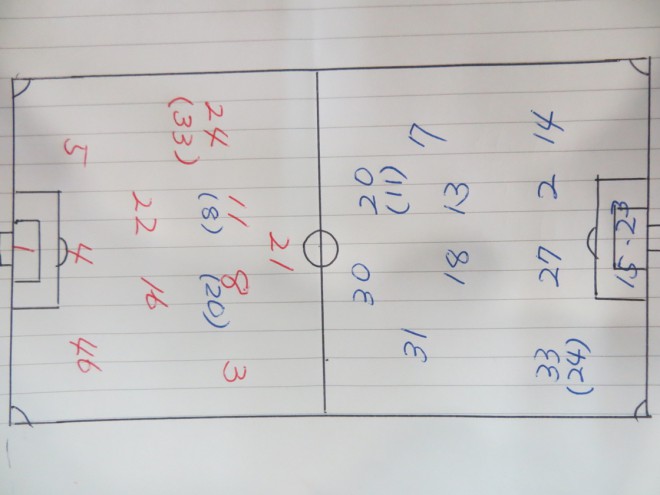 21
24
(33)
11
(8)
8
(20)
3
22
16
5
4
46
1
30
20
(11)
31
7
18
13
33
(24)
27
2
14
15・23